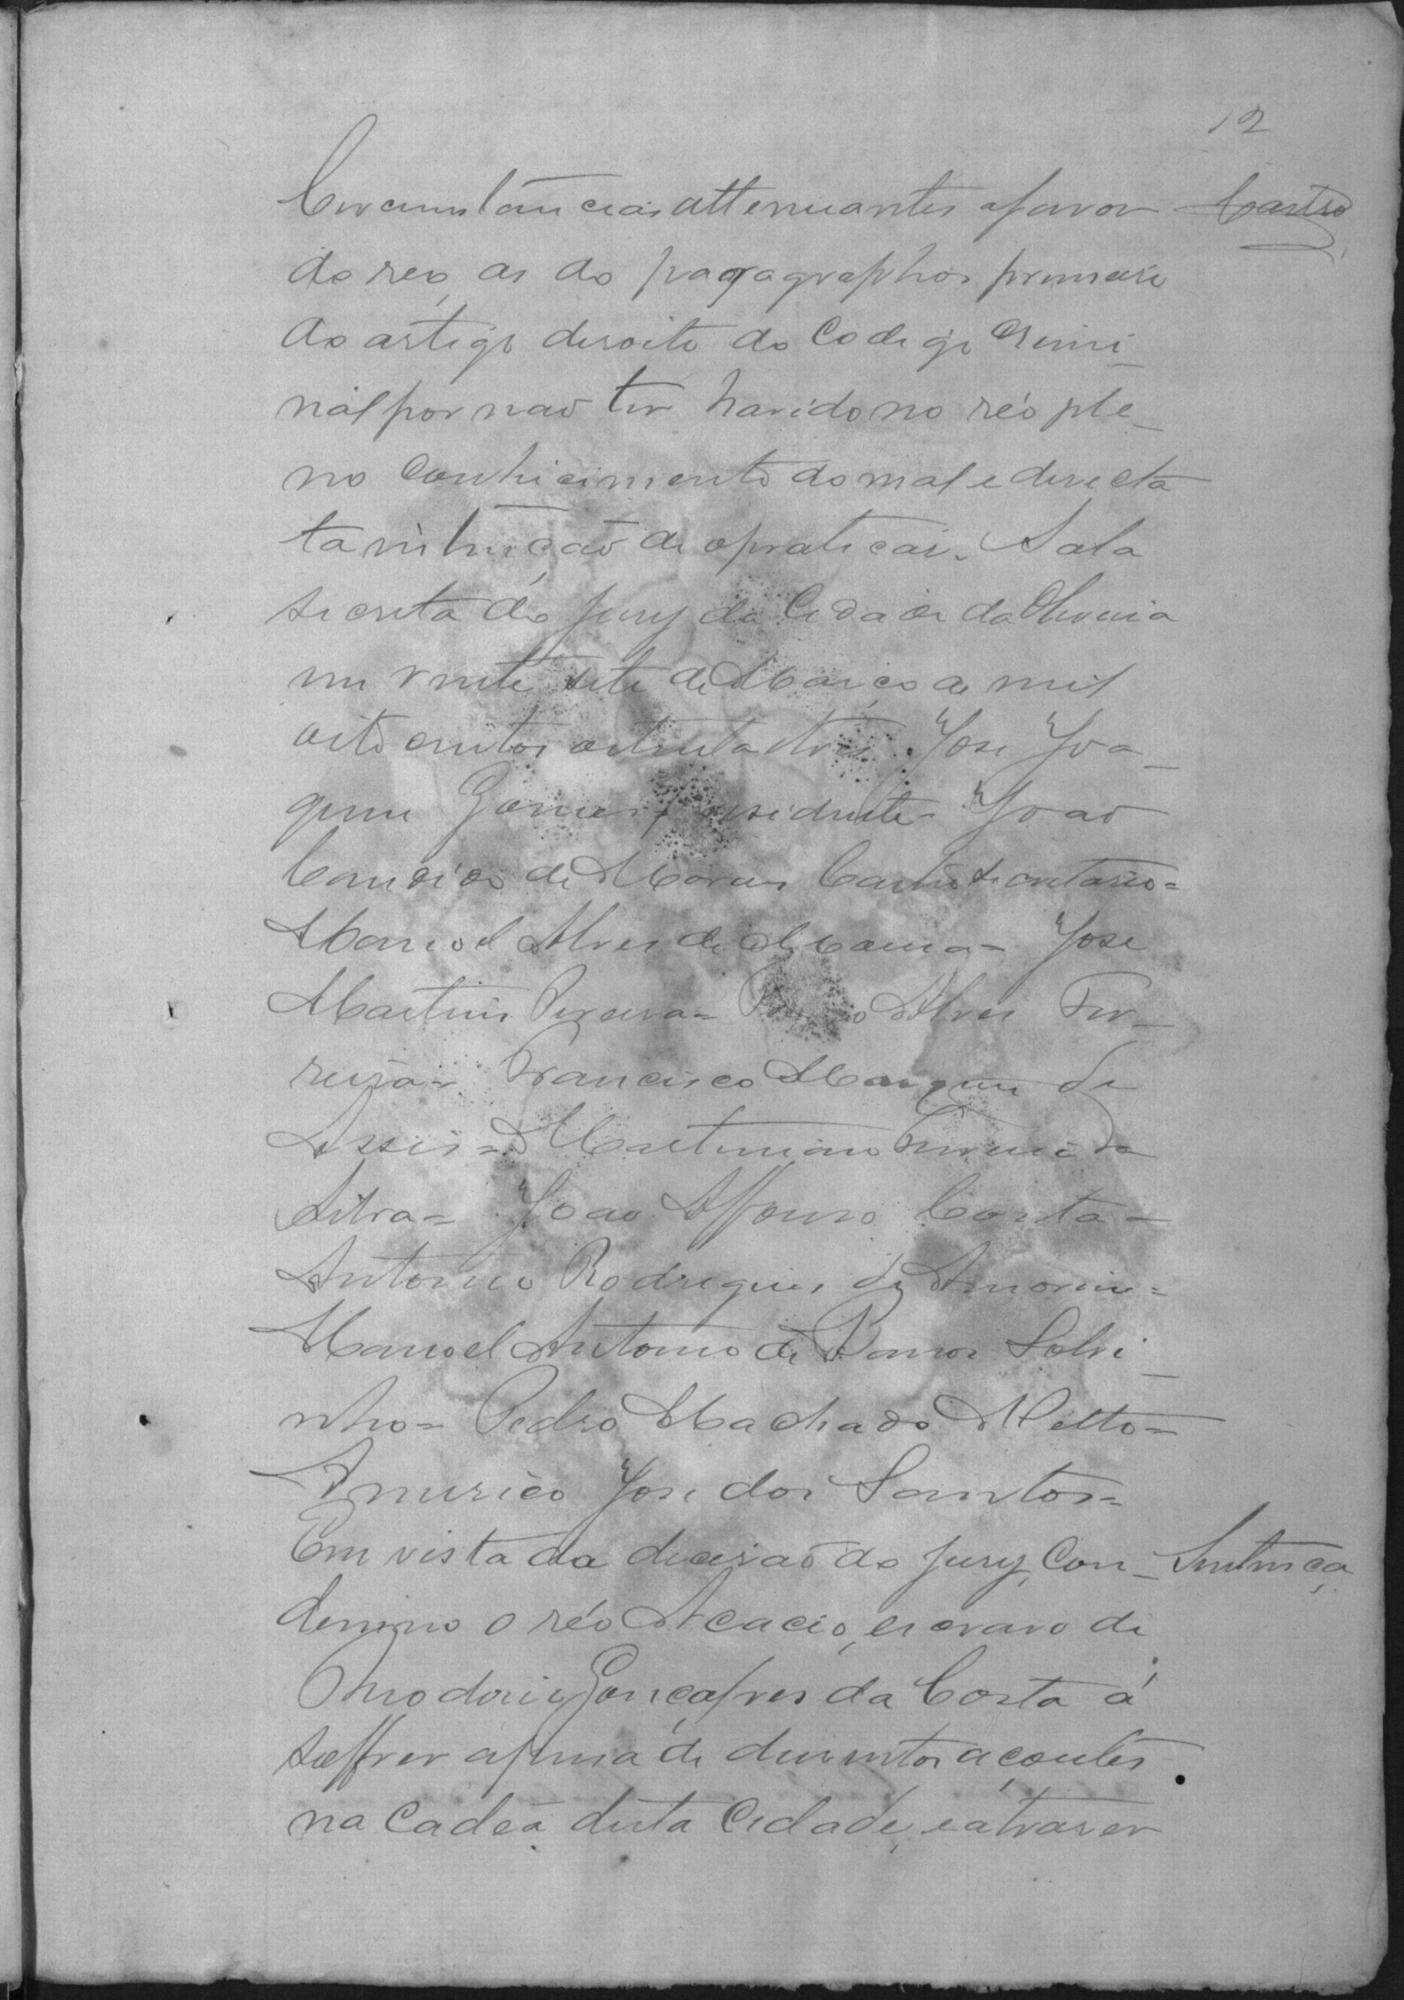 12
Circumstancias attenuantes a favor Castro
do reo, as do paragraphos primeiro
do artigo desoito do Codigo Crimi-
nal por não ter havido no réo ple-
no conhicimento do mal e directa
ta intenção de o praticar. Sala
secreta do Jury da Cidade da Oliveira
em vinte sete de Março de mil
oito centos oitenta e tres. Jose Joa-
quim Gomes, presidente= João
Candido de Moraes Castro secretario=
Manoel Alves de Moura= Jose
Martins Pereira= Alves Fer-
reira= Francisco Marques de
Assis= Martiniano Ferreira da
Silva= João Affonso Costa=
Antonio Rodrigues de Amorim=
Manoel Antonio de Ramos Sobri-
nho= Pedro Machado Netto=
Americo Jose dos Santos=
Em vista da decisão do Jury, Con- Sentença
demno o réo Acacio, escravo de
Theodosio Gonçalves da Costa á
soffrer a pena de dusentos açoutes
na cadea desta Cidade, e a traser